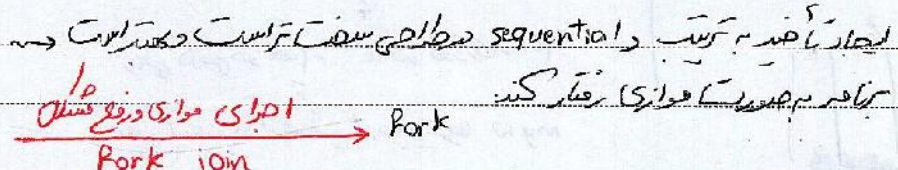 ایجاد تأخیر به ترتیب و sequential در طراحی سخت تر است و بهتر است
برنامه به صورت موازی رفتار کند.
اجرای موازی و رفع مشکل
Fork
Fork join